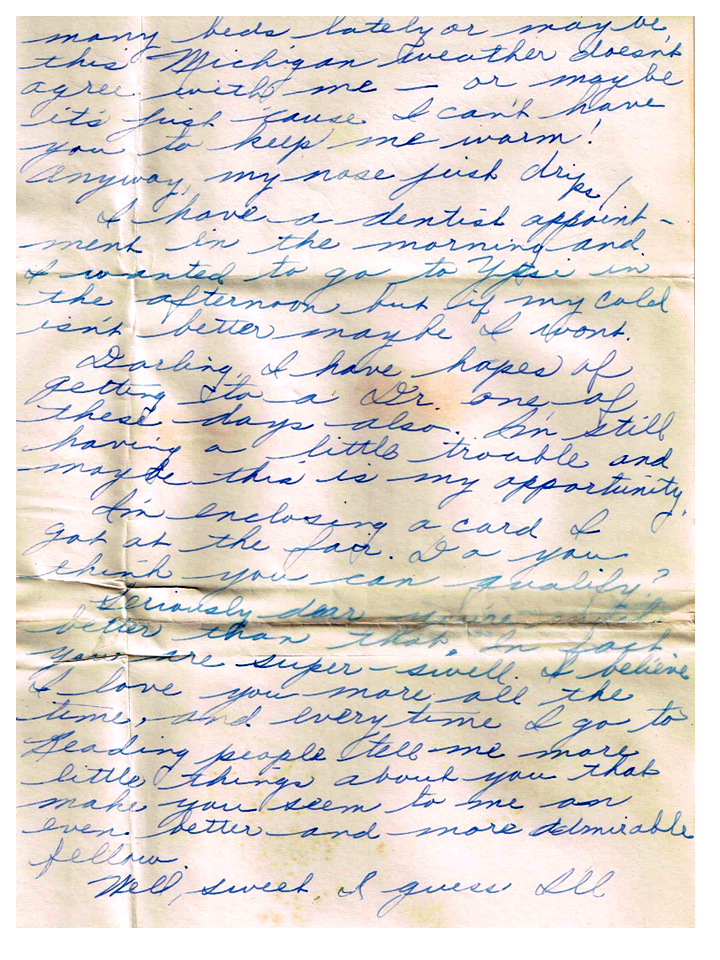 many beds lately or maybe
this Michigan weather doesn't
agree with me — or maybe
it's just 'cause I can't have
you to keep me warm!
Anyway, my nose just drips!
I have a dentist appoint-
ment in the morning and
I wanted to go to Ypsi in
the afternoon but if my cold
isn't better maybe I wont.
Darling, I have hopes of
getting to a Dr. one of
these days also. I'm still
having a little trouble and
maybe this is my opportunity.
I'm enclosing a card I
got at the fair. Do you
think you can qualify?
Seriously dear you're
better than that, In fact
you are super-swell. I believe
I love you more all the
time, and everytime I go to
Reading people tell me more
little things about you that
make you seem to me an
even better and more admirable
fellow.
Well, sweet I guess I'll